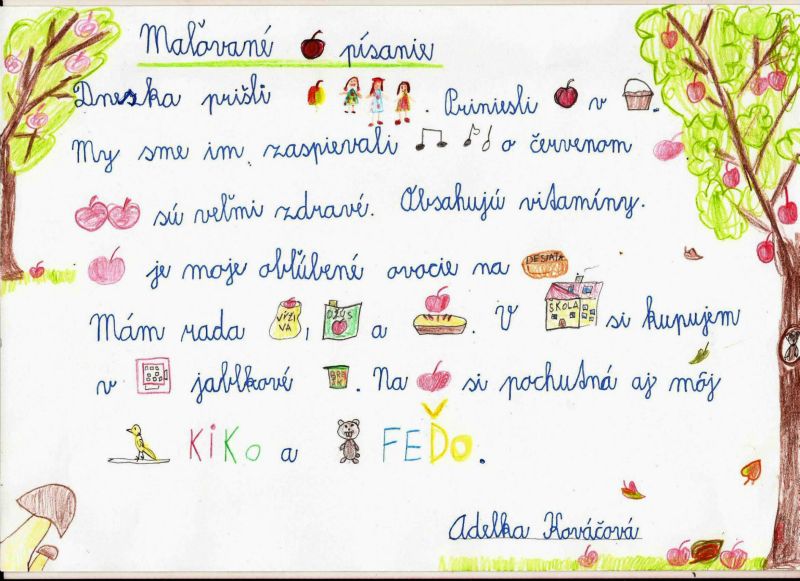 Maľované písanie
Dneska prišli . Priniesli v .
My sme im zaspievali o červenom
sú veľmi zdravé. Obsahujú vitamíny.
je moje obľúbené ovocie na DESIATA
Mám rada VÝŽIVA, DŽÚS a . V ŠKOLA si kupujem
v jablkové . Na si pochutná aj môj
KIKO a FEĎO.
Adelka Kováčová